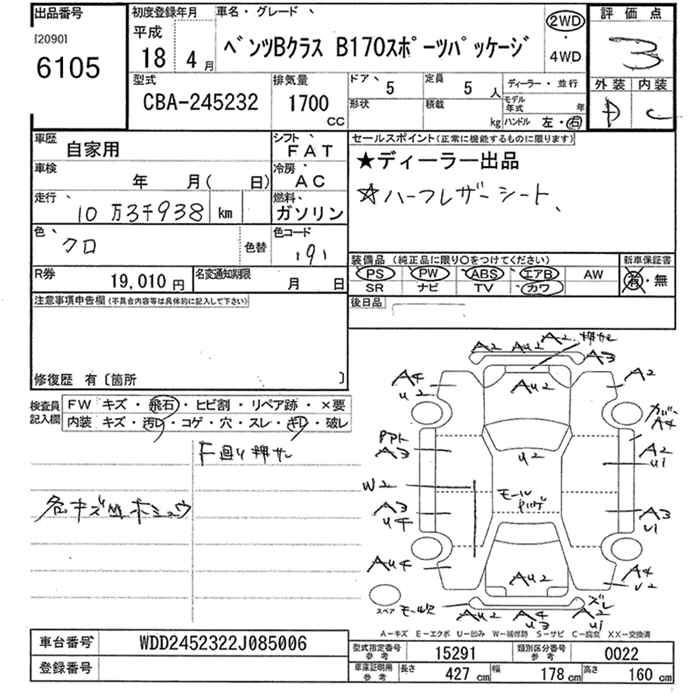 出品番号
[20901
6105
初度登録年月
平成
18年4月
車名・グレード
ベンツBクラス B170スポーツパッケージ
2WD
・
4WD
評価点
3
外装 内装
D C
型式
CBA-245232
排気量
1700
CC
ドア
5
定員
5人
ディーラー・並行
形状
積載
kg
モデル年式 年
ハンドル 左・右
車歴
自家用
シフト
FAT
車検
年 月( 日)
冷房
AC
走行
10万3千938 km
燃料
ガソリン
色
クロ
色替
色コード
191
R券
19,010円
名変通知期限
月 日
セールスポイント(正常に機能するものに限ります)
★ディーラー出品
☆ハーフレザーシート、
装備品(純正品に限り○をつけてください)
新車保証書
PS PW ABS エアB AW
SR ナビ TV カワ
有・無
後日品
注意事項申告欄(不具合内容等は具体的に記入して下さい)
修復歴 有〔箇所 〕
検査員記入欄
FW キズ・飛石・ヒビ割・リペア跡・×要
内装 キズ・汚レ・コゲ・穴・スレ・キレ・破レ
F廻り押サレ
各キズ
A2 AU2 A2 押サレ
A3
A4
U2
AU2
A2
A4
A3
U2
A2
U1
W2
A3
U4
モール
A3
U1
AU4
AU2
A4
U2
スペア
AU2 A4 A2
U3 U1
A―キズ E―エクボ U―凹ミ W―補修跡 S―サビ C―腐食 XX―交換済
車台番号
WDD2452322J085006
登録番号
型式指定番号
参考
15291
類別区分番号
参考
0022
車庫証明用
参考
長さ
427 cm
幅
178 cm
高さ
160 cm